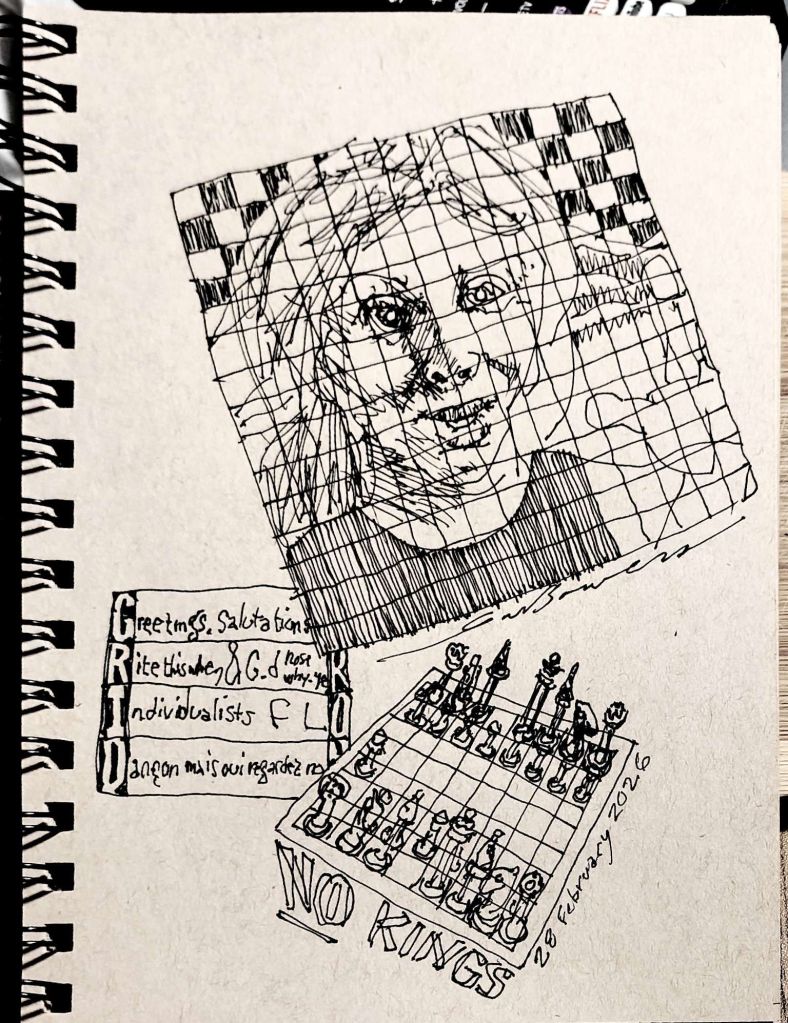 Greetings. Salutations
Rite this when & G.d nose why-ye R
Individualists F L O
Dançon mais oui regardez no
NO KINGS
28 February 2026